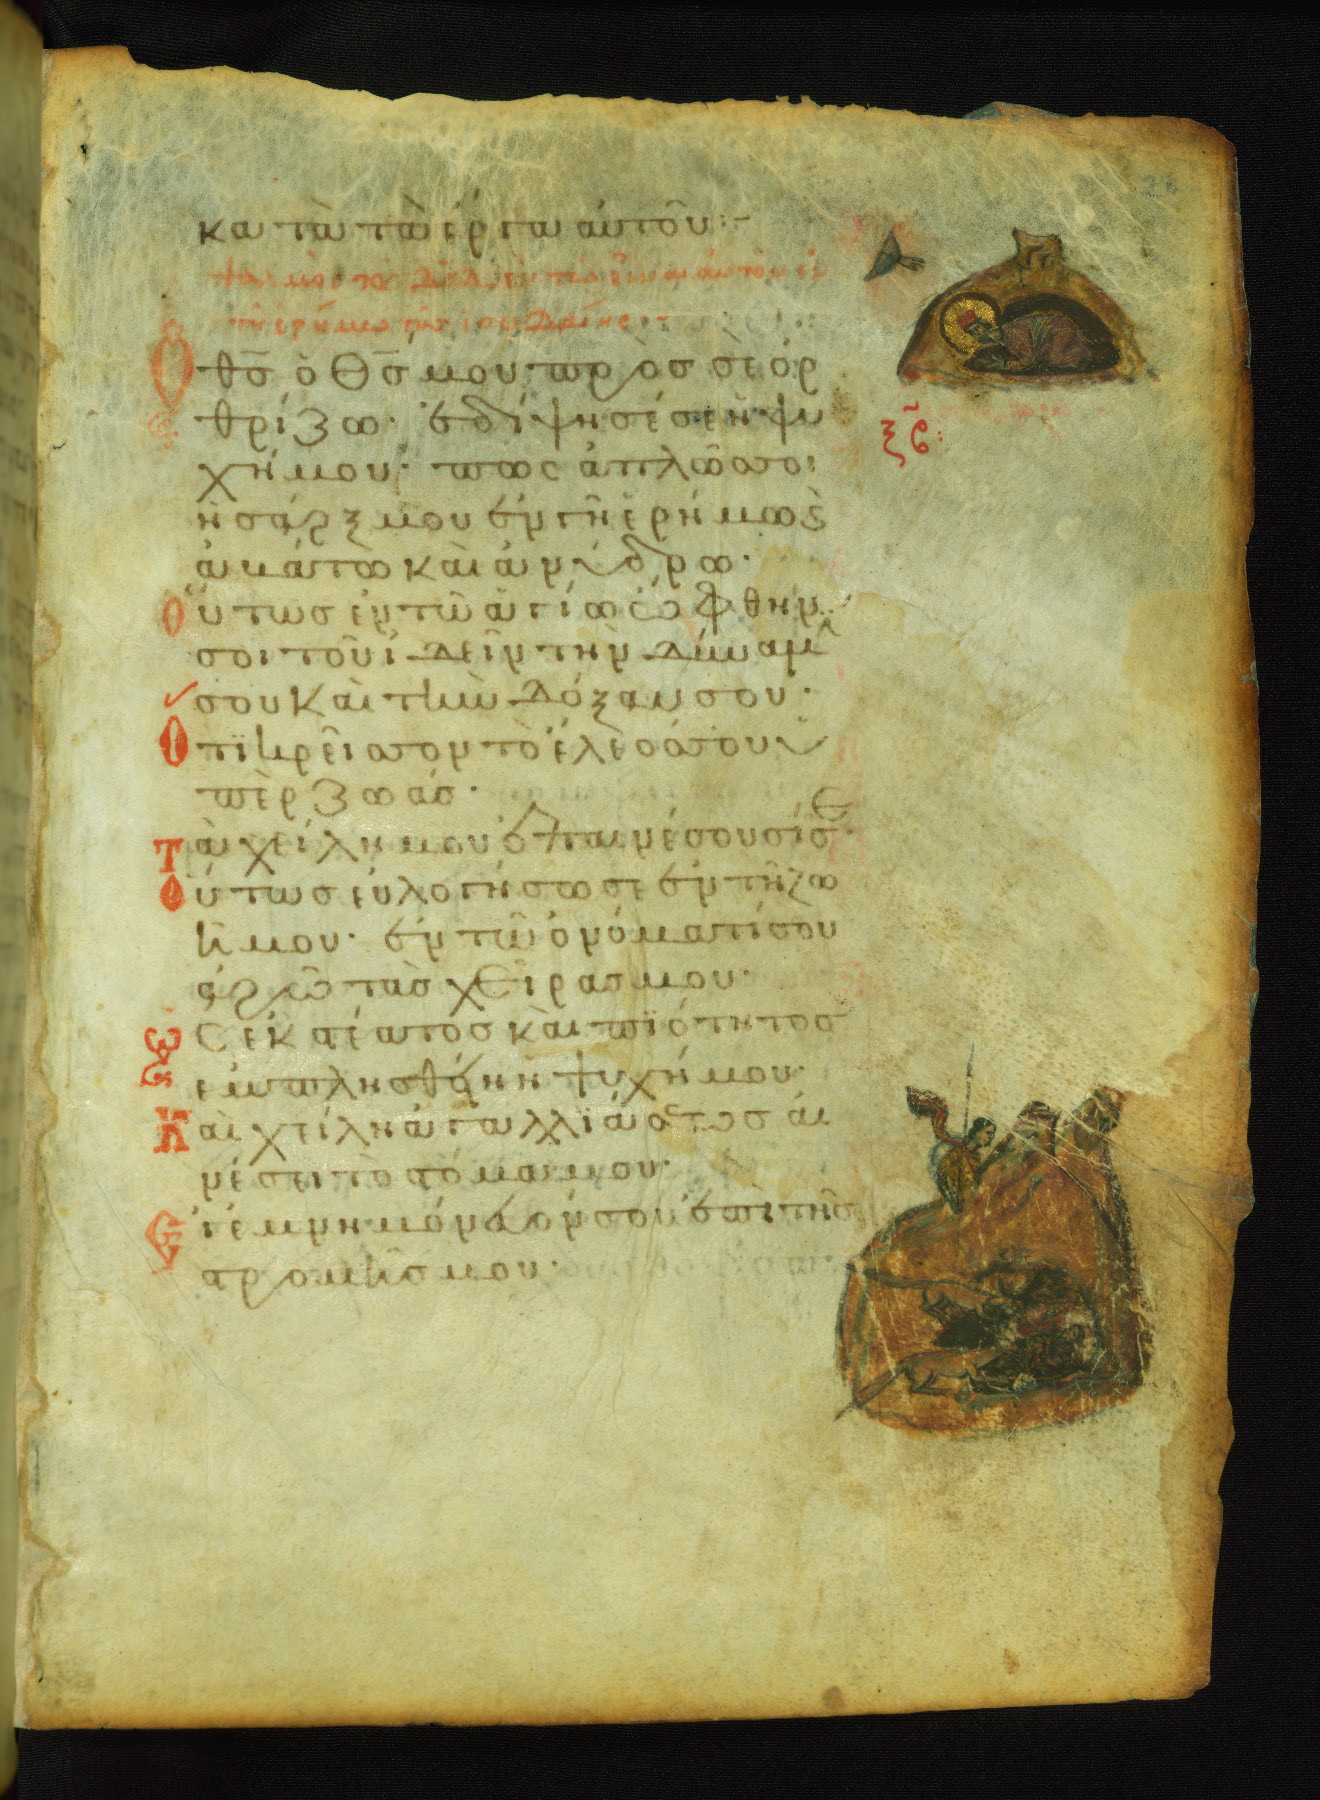 κατὰ τὰ ἔργα αὐτοῦ:-
ψαλμὸς τῶ δαδ ἐν τῶ εἶναι αὐτὸν ἐν
τῆ ἐρήμω τῆς ἰουδαίας:-
Ὁ θς̅ ὁ Θς̅ μου πρὸσ σὲ ὀρ
θρίζω· ἐδίψησέ σε ἡ ψυ
χή μου· ποσαπλῶσ σοι
ἡ σάρξ μου ἐν γῆ ἐρήμω ὲ
ἀβάτω καὶ ἀνύδρω·
Οὕτωσ ἐν τῶ ἁγίω ὤφθην
σοι τοῦ ἰδεῖν τὴν δύναμῖ
σου καὶ τὴν δόξαν σου·
Ὅτι κρεῖσσον τὸ ἔλεόσ σου ὑ
πὲρ ζωάσ·
Τὰ χείλη μου ἐπαινέσουσί σε·
Οὕτωσ εὐλογήσω σε ἐν τῆ ζω
ῆ μου· ἐν τῶ ὀνόματί σου
ἀρῶ τὰσ χεῖρασ μου·
Ὡσ ἐκ στέατοσ καὶ πιότητοσ
ἐμπλησθείη ἡ ψυχή μου·
Καὶ χείλη ἀγαλλιάσεωσ αἰ
νέσει τὸ στόμα μου·
Εἰ ἐμνημόνευόν σου ἐπὶ τῆσ
στρωμνῆσ μου·
ξβ̅: